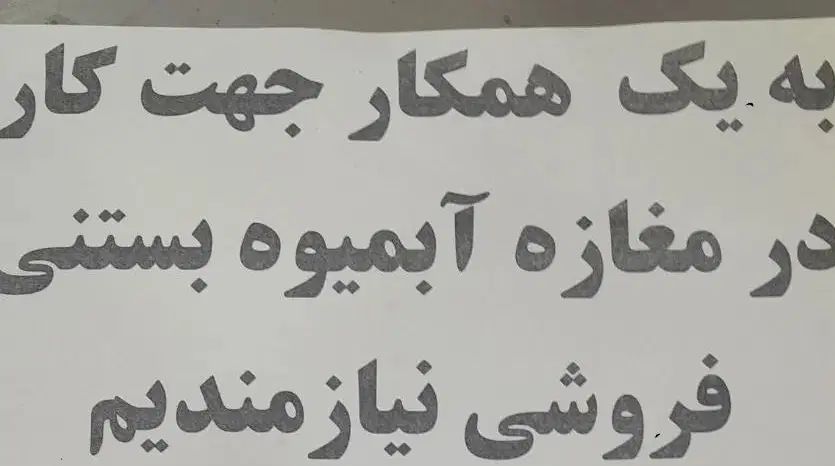 به یک همکار جهت کار
در مغازه آبمیوه بستنی
فروشی نیازمندیم